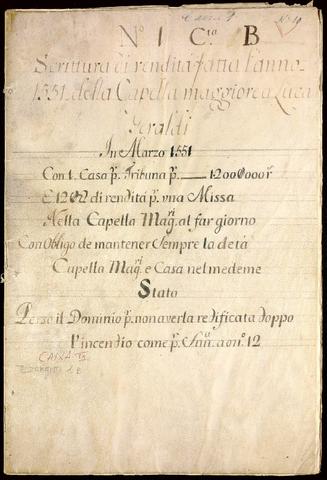 Nº 1 Cta B
Nº 19
Scrittura di rendita fatta l'anno
1551 della Capella maggiore a Luca
Geraldi
In Marzo 1551
Con t. Casa p. Tribuna p. —— 1200000 r
E 1202 di rendita p. vna Missa
Nella Capella Magri. al far giorno
Con Obligo de mantener Sempre la deta
Capella Magri. e Casa nel medeme
Stato
Perso il Dominio p. non averla redificata doppo
l'incendio come p. a nº. 12
CAIXA